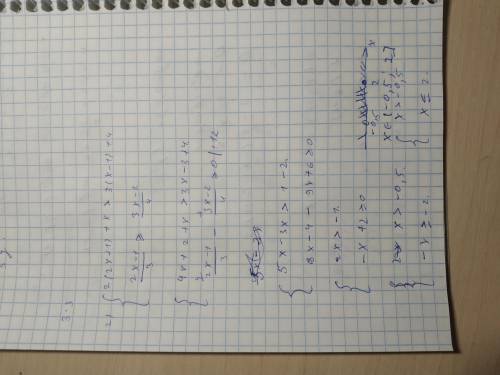 3.3
2) { 2(2x+1) + x > 3(x-1) + 4
{ 2x-1/3 ≥ 3x-2/4
{ 4x + 2 + x > 3x - 3 + 4
{ 2x-1/3 - 3x-2/4 ≥ 0 | · 12
{ 5x - 3x > 1 - 2
{ 8x - 4 - 9x + 6 ≥ 0
{ 2x > -1
{ -x + 2 ≥ 0
{ x > -0,5
{ -x ≥ -2
{ x > -0,5
{ x ≤ 2
-0,5 2 x
x ∈ (-0,5; 2]